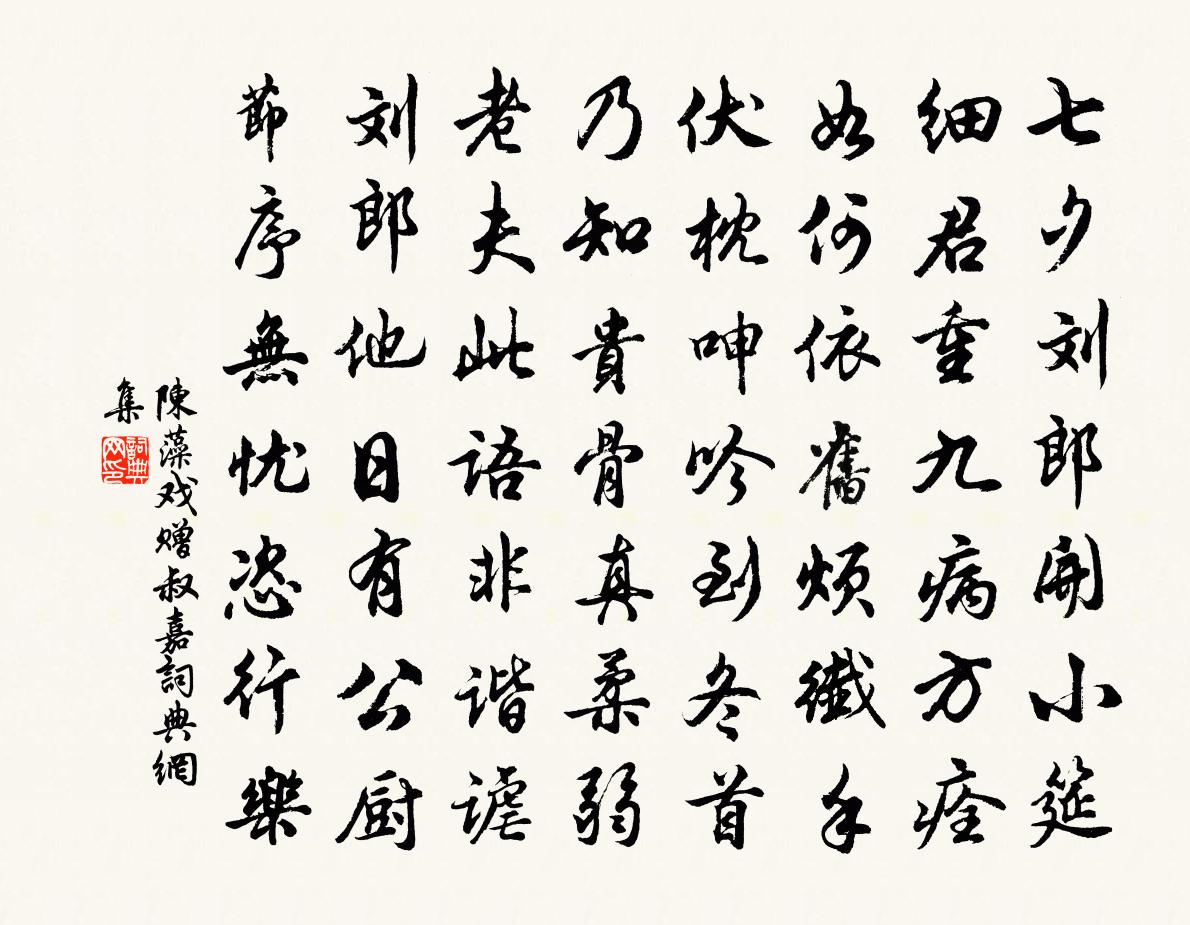 七夕刘郎開小筵
细君重九病方痊
如何依舊煩纖手
伏枕呻吟到冬首
乃知貴骨真柔弱
老夫此語非谐谑
刘郎他日有公厨
節序無忧恣行樂
陳藻戏赠叔嘉詞典網
集
詞典
网印